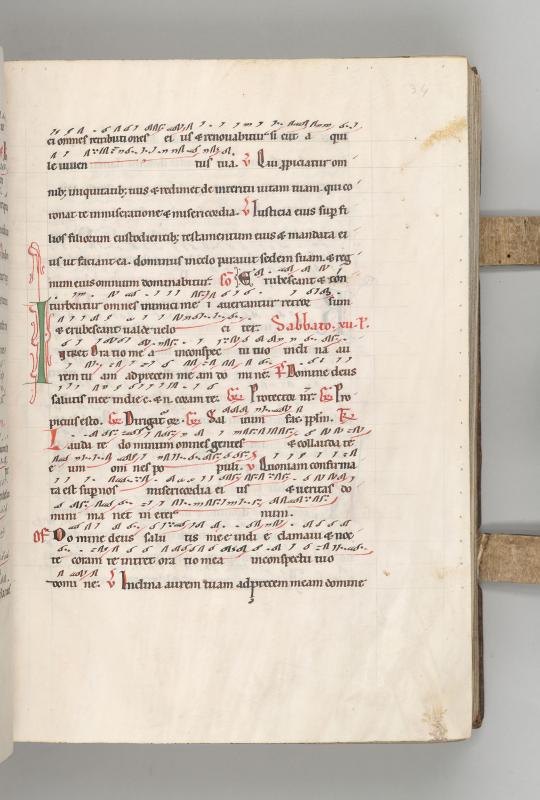 34
ei omnes retributiones ei us & renouabitur si cut a qui
le iuuen tus tua. v Qui ppiciatur om
nib; iniquitatib; tuis & redimet de interitu uitam tuam. qui co
ronat te in miseratione & misericordia. v Iusticia eius sup fi
lios filiorum custodientib; testamentum eius & mandata ei
us ut faciant ea. dominus in celo parauit sedem suam. & reg
num eius omnium dominabitur. Co Erubescant & con
turbentur omnes inimici me i auertantur retro sum
& erubescant ualde uelo ci ter. Sabbato. xii. l.
Intret ora tio me a in conspec tu tuo incli na au
rem tu am ad precem me am do mi ne. Domine deus
salutis mee in die c. & n. coram te. Protector nr. Pro
picius esto. Dirigat or. Sal uum fac pplm.
Lauda te do minum omnes gentes & collauda te
e um om nes po puli. v Quoniam confirma
ta est sup nos misericordia ei us & ueritas do
mini ma net in eter num.
Of Domine deus salu tis mee in di e clamaui & noc
te coram te intret ora tio mea in conspectu tuo
domi ne. v Inclina aurem tuam ad precem meam domine